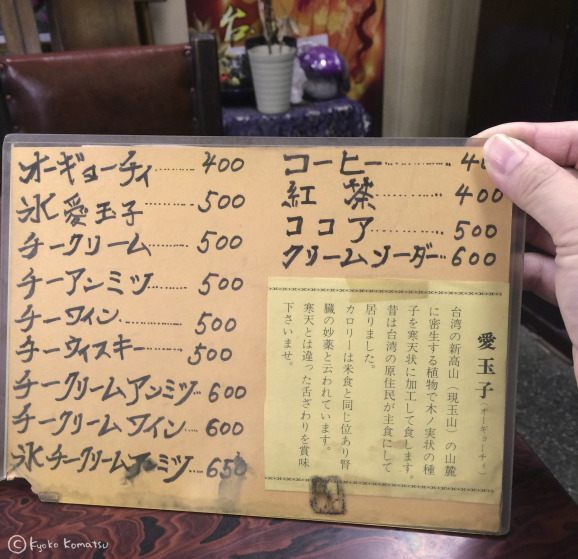 オーギョーチィ………400
氷愛玉子………500
チークリーム………500
チーアンミツ………500
チーワイン………500
チーウィスキー……500
チークリームアンミツ…600
チークリームワイン…600
氷チークリームアンミツ…650
コーヒー………400
紅茶………400
ココア………500
クリームソーダー…600
愛玉子(オーギョーチィ)
台湾の新高山(現玉山)の山麓
に密生する植物で木ノ実状の種
子を寒天状に加工して食します。
昔は台湾の原住民が主食にして
居りました。
カロリーは米食と同じ位あり腎
臓の妙薬と云われています。
寒天とは違った舌ざわりを賞味
下さいませ。
台
©Kyoko Komatsu